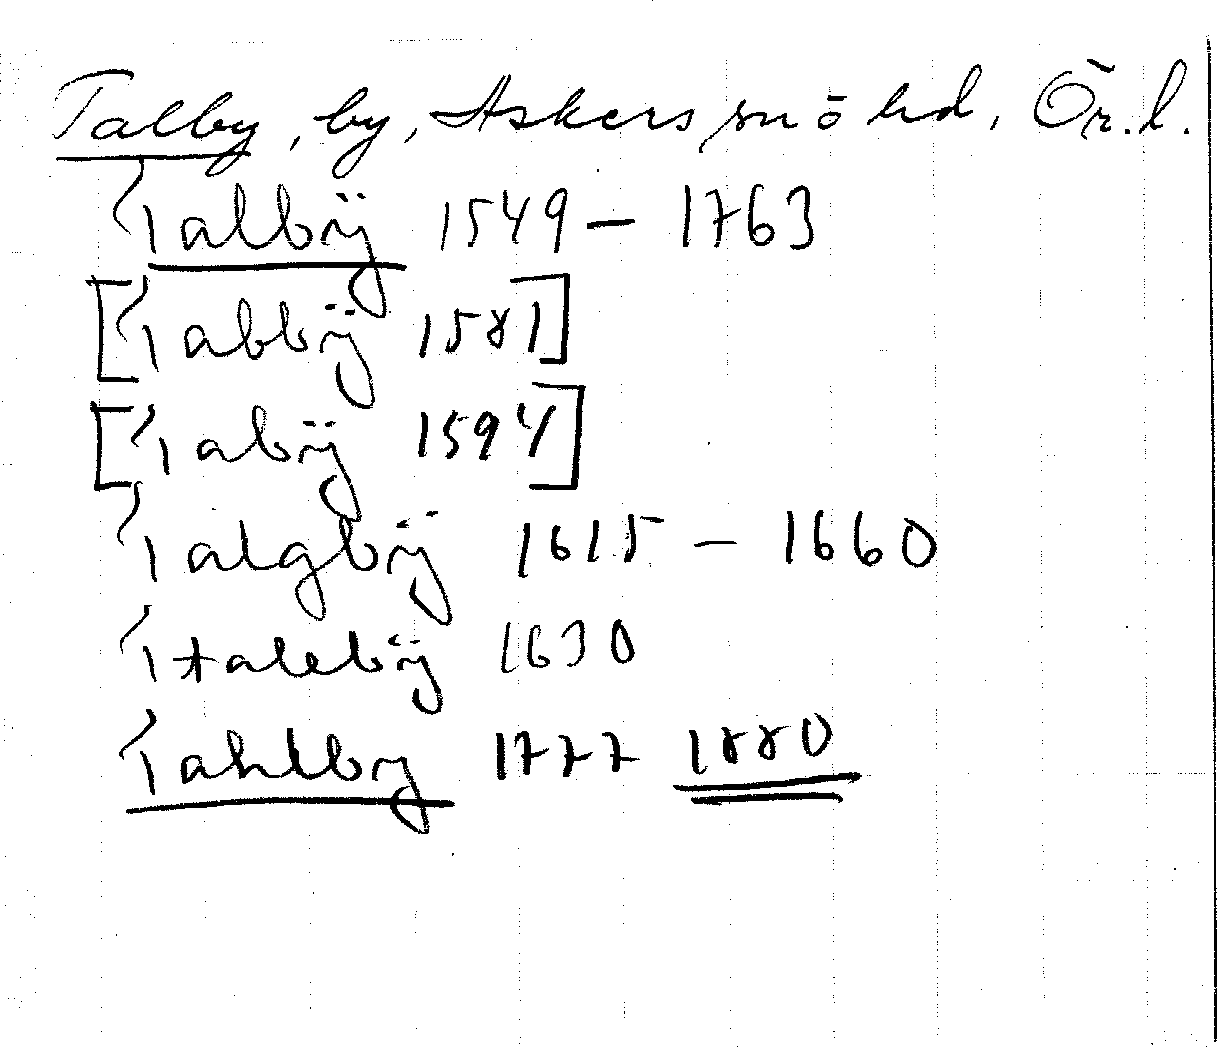 Talby, by, Askers sn ö hd, Ör. l.
Talbÿ 1549 – 1763
[Tabbÿ 1581]
[Tabÿ 1594]
Talgbÿ 1615 – 1660
Ttalebÿ 1630
Tahlby 1777 1880